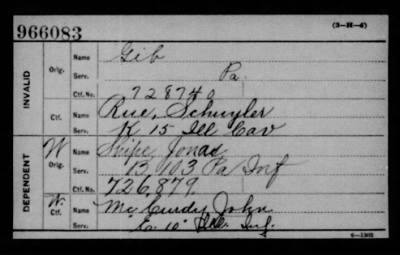 966083
(3—H—4)
INVALID
Orig.
Name Gib
Serv. Pa.
Ctf. No. 728740
Ctf.
Name Rue, Schuyler
Serv. K 15 Ill Cav
DEPENDENT
W Orig.
Name Snipe, Jonas
Serv. 13 103 Pa Inf
Ctf. No. 726,879
W. Ctf.
Name McCurdy John
Serv. "Co. 10" Inf.